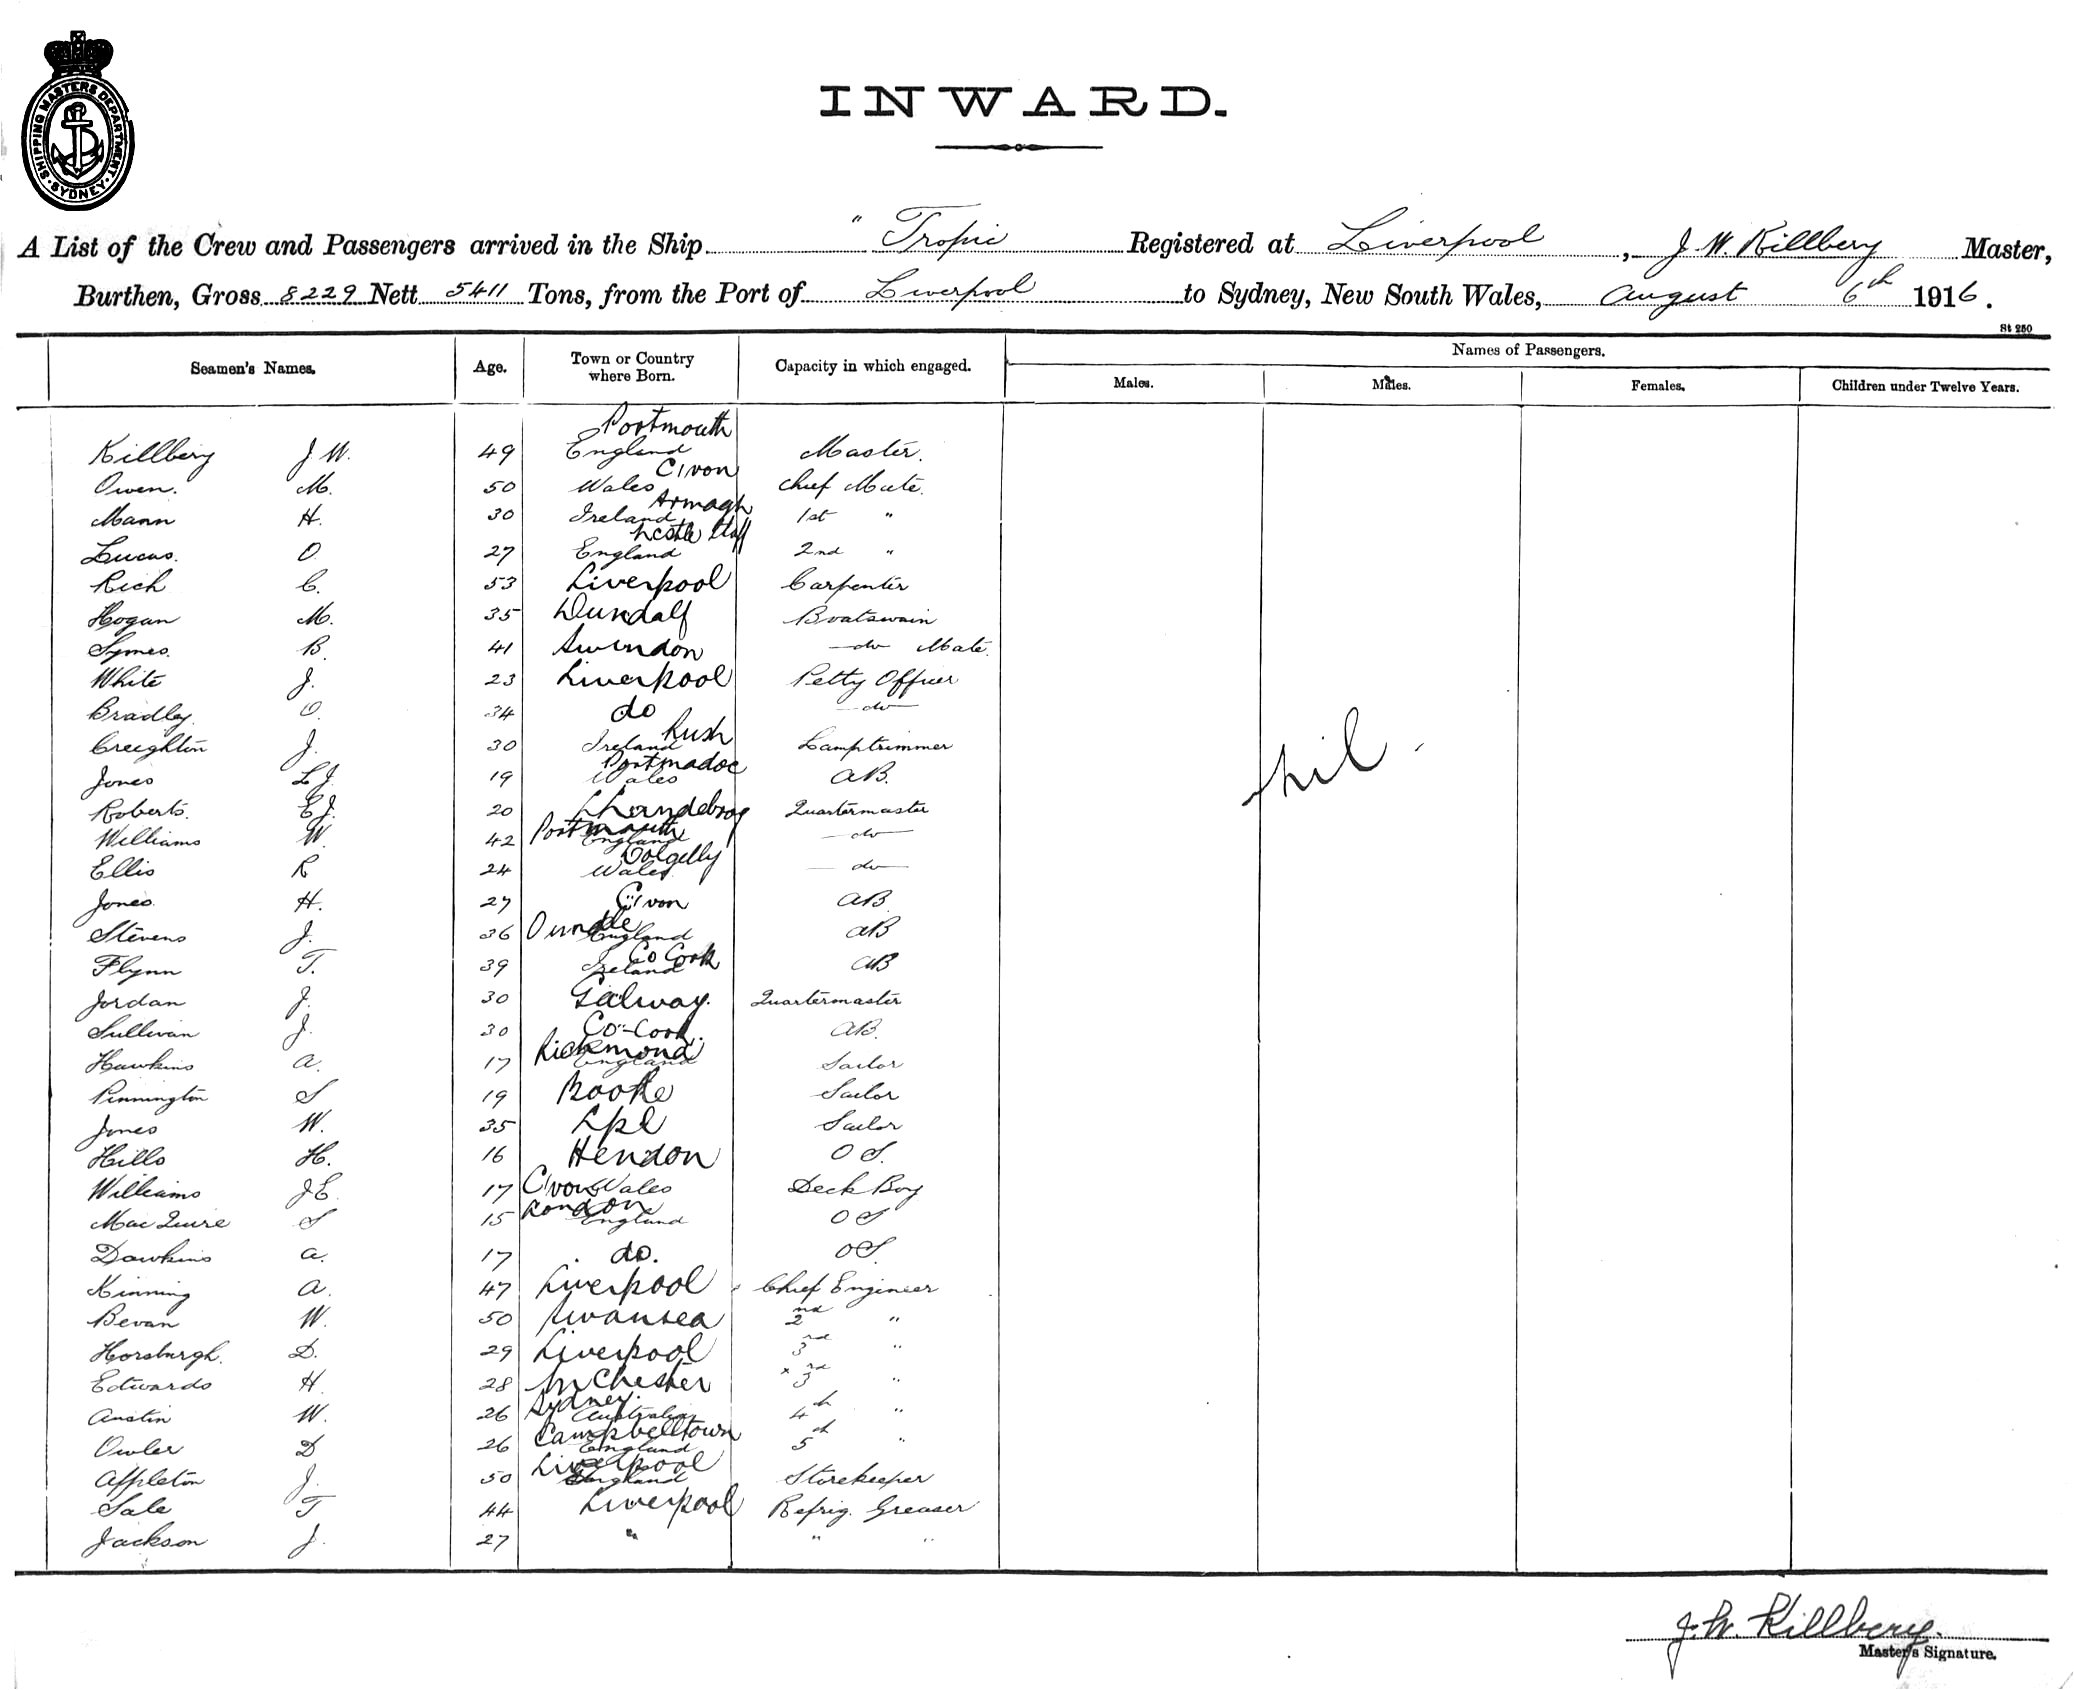 SHIPPING MASTERS DEPARTMENT · SYDNEY ·
INWARD.
A List of the Crew and Passengers arrived in the Ship " Tropic Registered at Liverpool, J. W. Killbery Master,
Burthen, Gross 8229 Nett 5411 Tons, from the Port of Liverpool to Sydney, New South Wales, August 6th 1916.
St 250
Seamen's Names. Age. Town or Country where Born. Capacity in which engaged. Names of Passengers.
Males. Males. Females. Children under Twelve Years.
Killbery J W. 49 Portmouth England Master.
Owen. M. 50 Wales C/von Chief Mate.
Mann H. 30 Ireland Armagh 1st "
Lucas. O 27 England Ncstle Staff 2nd "
Rich C. 53 Liverpool Carpenter
Hogan M. 35 Dundalf Boatswain
Symes. B. 41 Swindon do Mate.
White J. 23 Liverpool Petty Officer
Bradley. O. 34 do do
Creighton J. 30 Ireland Rush Lamptrimmer
Jones L J. 19 Portmadoc Wales AB.
Roberts. E J. 20 Quartermaster
Williams W. 42 Portmouth England do
Ellis R 24 Dolgelly Wales do
Jones. H. 27 C/von AB
Stevens J. 36 Oundle England AB
Flynn T. 39 Co Cork Ireland AB
Jordan J. 30 Galway. Quartermaster
Sullivan J. 30 Co-Cork. AB.
Hawkins A. 17 Richmond England Sailor
Pinnington S 19 Bootle Sailor
Jones W. 35 Lpl Sailor
Hills H. 16 Hendon O S.
Williams J E. 17 C/von Wales Deck Boy
MacQuire S 15 London England O S
Dawkins A. 17 do. O S.
Kinning A. 47 Liverpool Chief Engineer
Bevan W. 50 Swansea 2nd "
Horsburgh. D. 29 Liverpool 3rd "
Edwards H. 28 M Chester x 3rd "
Austin W. 26 Sydney. Australia 4th "
Owler D 26 Campbelltown England 5th "
Appleton J. 50 Liverpool England Storekeeper
Sale T 44 Liverpool Refrig. Greaser
Jackson J. 27 " " "
nil
J. W. Killbery.
Master's Signature.